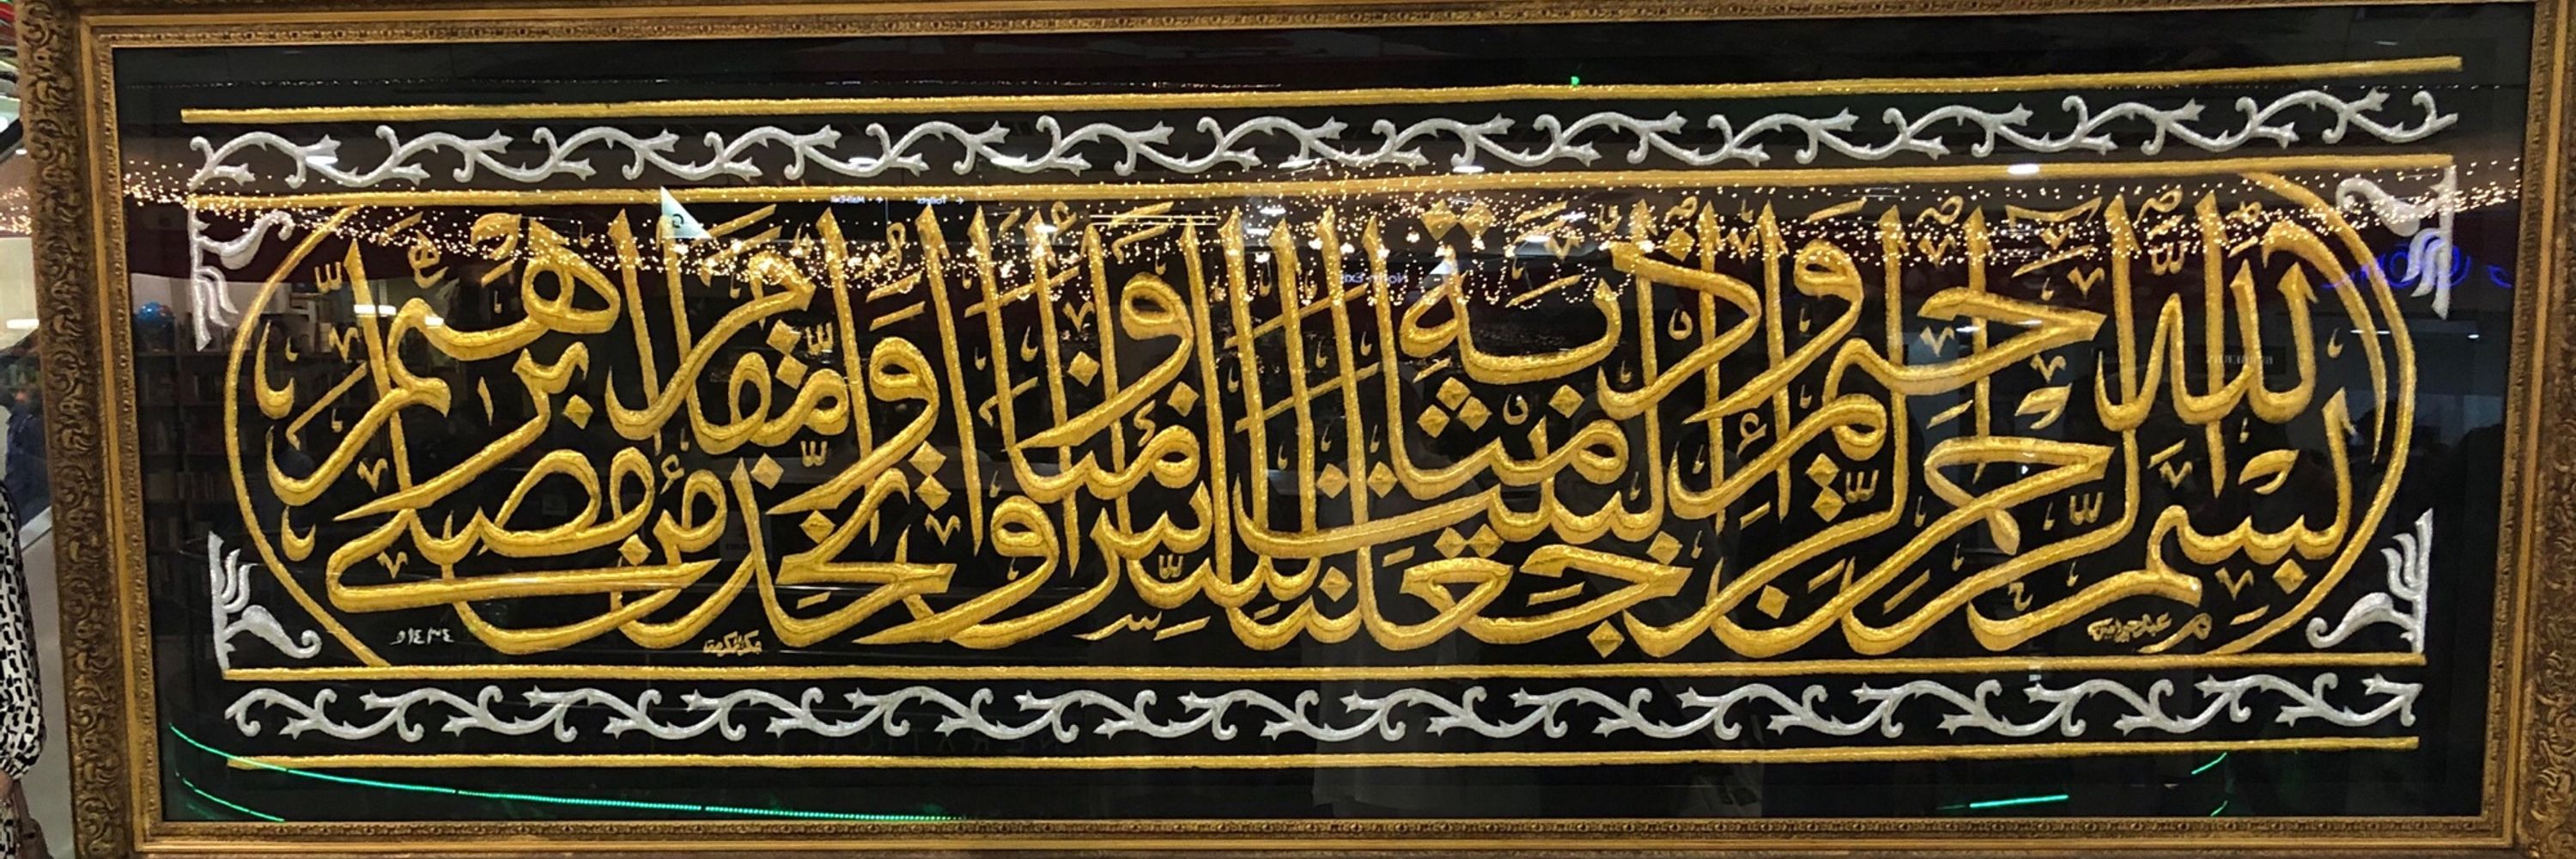 بسم الله الرحمن الرحيم وإذ جعلنا البيت مثابة للناس وأمنا واتخذوا من مقام إبراهيم مصلى
مكة المكرمة
١٤٣٤هـ